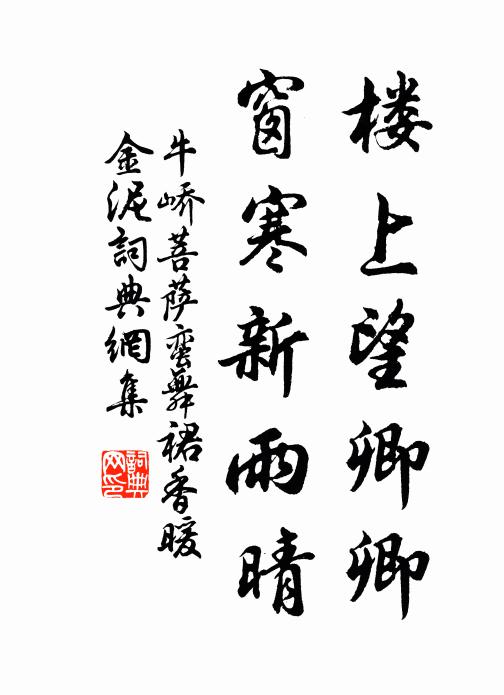 楼上望卿卿
窗寒新雨晴
牛峤菩萨蛮舞裙香暖
金泥詞典網集
詞典
网印